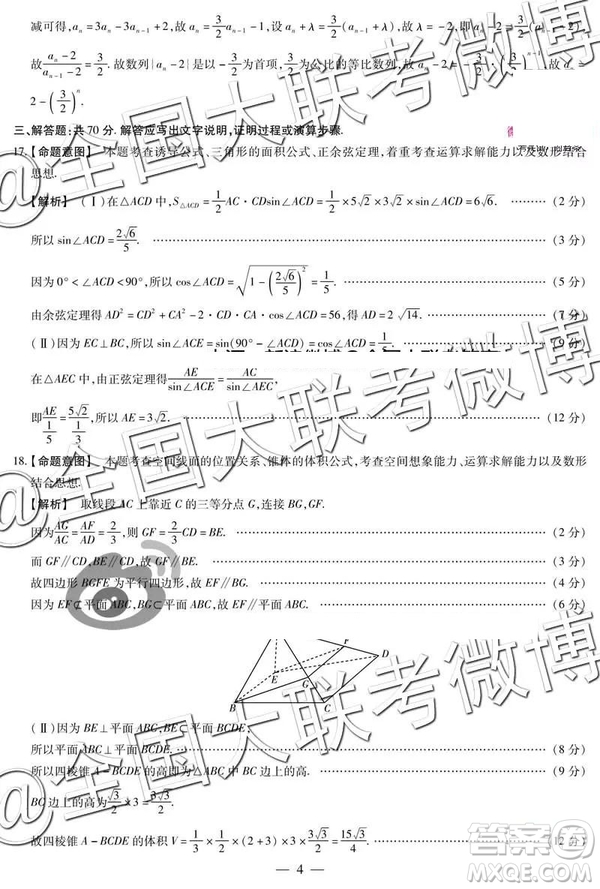 减可得,a_n=3a_n-3a_{n-1}+2,故a_n=\frac{3}{2}a_{n-1}-1,设a_n+λ=\frac{3}{2}(a_{n-1}+λ),故a_n-2=\frac{3}{2}(a_{n-1}-2),
故\frac{a_n-2}{a_{n-1}-2}=\frac{3}{2}.故数列{a_n-2}是以-\frac{3}{2}为首项,\frac{3}{2}为公比的等比数列,故a_n-2=-\frac{3}{2}·(\frac{3}{2})^{n-1},故a_n=
2-(\frac{3}{2})^n.
三、解答题:共70分.解答应写出文字说明,证明过程或演算步骤.
17.【命题意图】 本题考查诱导公式、三角形的面积公式、正余弦定理,着重考查运算求解能力以及数形结合
思想.
【解析】 (Ⅰ)在△ACD中,S_{△ACD}=\frac{1}{2}AC·CDsin∠ACD=\frac{1}{2}×5\sqrt{2}×3\sqrt{2}×sin∠ACD=6\sqrt{6}. (2分)
所以sin∠ACD=\frac{2\sqrt{6}}{5}. (3分)
因为0°<∠ACD<90°,所以cos∠ACD=\sqrt{1-(\frac{2\sqrt{6}}{5})^2}=\frac{1}{5}. (5分)
由余弦定理得AD^2=CD^2+CA^2-2·CD·CA·cos∠ACD=56,得AD=2\sqrt{14}. (7分)
(Ⅱ)因为EC⊥BC,所以sin∠ACE=sin(90°-∠ACD)=cos∠ACD=\frac{1}{5}. (9分)
在△AEC中,由正弦定理得\frac{AE}{sin∠ACE}=\frac{AC}{sin∠AEC},
即\frac{AE}{\frac{1}{5}}=\frac{5\sqrt{2}}{\frac{1}{3}},所以AE=3\sqrt{2}. (12分)
18.【命题意图】 本题考查空间线面的位置关系、锥体的体积公式,考查空间想象能力、运算求解能力以及数形
结合思想.
【解析】 取线段AC上靠近C的三等分点G,连接BG,GF.
因为\frac{AG}{AC}=\frac{AF}{AD}=\frac{2}{3},则GF=\frac{2}{3}CD=BE. (2分)
而GF∥CD,BE∥CD,故GF∥BE. (3分)
故四边形BGFE为平行四边形,故EF∥BG. (4分)
因为EF⊄平面ABC,BG⊂平面ABC,故EF∥平面ABC. (6分)
F
D
E
G
B
C
(Ⅱ)因为BE⊥平面ABC,BE⊂平面BCDE,
所以平面ABC⊥平面BCDE, (8分)
所以四棱锥A-BCDE的高即为△ABC中BC边上的高. (9分)
BC边上的高为\frac{\sqrt{3}}{2}×3=\frac{3\sqrt{3}}{2},
故四棱锥A-BCDE的体积V=\frac{1}{3}×\frac{1}{2}×(2+3)×3×\frac{3\sqrt{3}}{2}=\frac{15\sqrt{3}}{4}. (12分)
— 4 —
@全国大联考微博
@全国大联考微博
@全国大联考微博